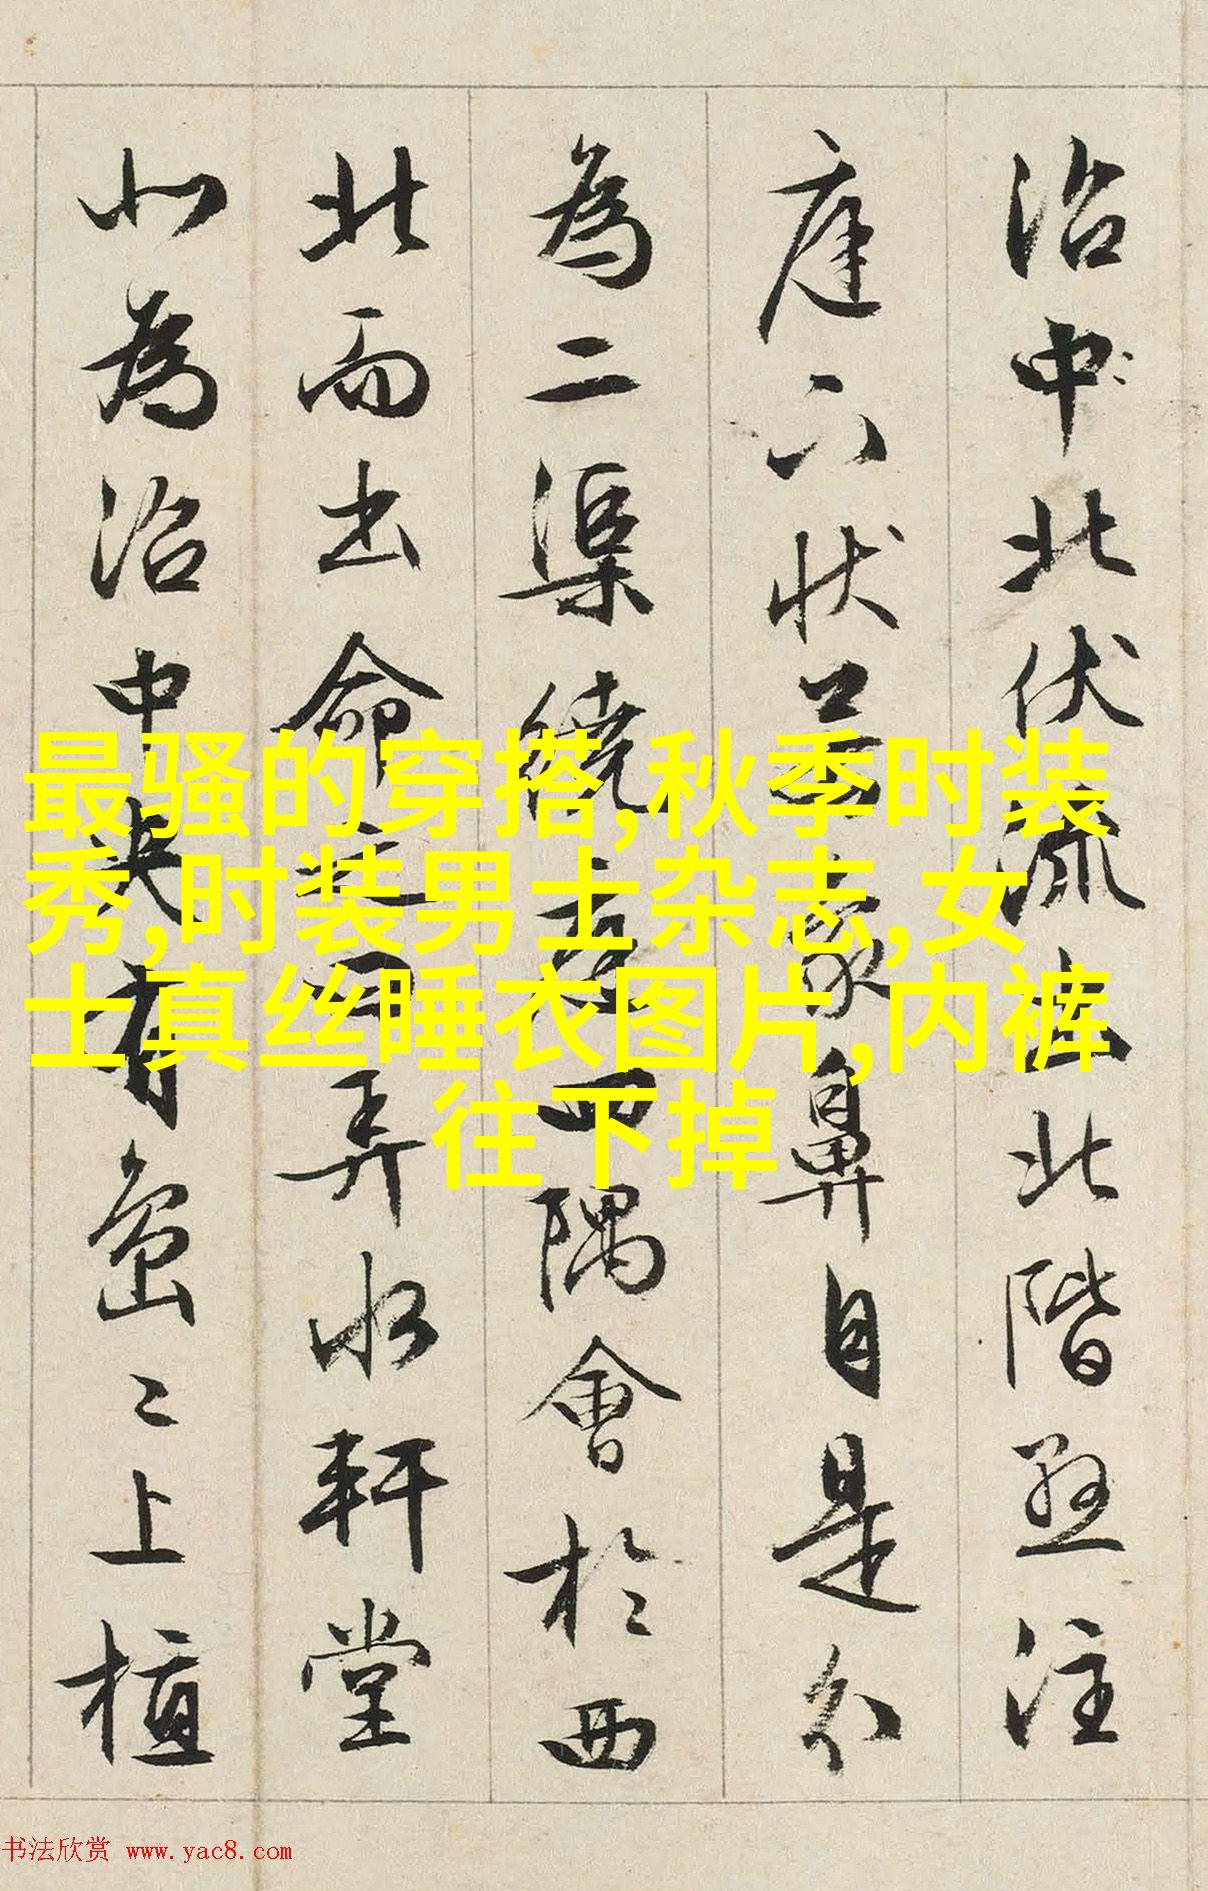 沼中北伏流出北階懸注
庭下状若象鼻自是分
為二渠繞庭四隅會於西
北而出命之曰弄水軒堂
北為沼中央有島〻上植
最骚的穿搭,秋季时装
秀,时装男士杂志,女
士真丝睡衣图片,内裤
往下掉
书法欣赏 www.yac8.com